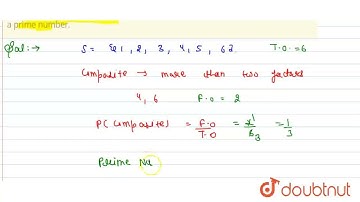 a prime number.
Sol:→ S = {1, 2, 3, 4, 5, 6}. T.O. = 6
Composite → more than two factors
4, 6 F.O = 2
P(Composite) = F.O/T.O = 2̸1/6̸3 = 1/3
Prime Nu
doubtnut